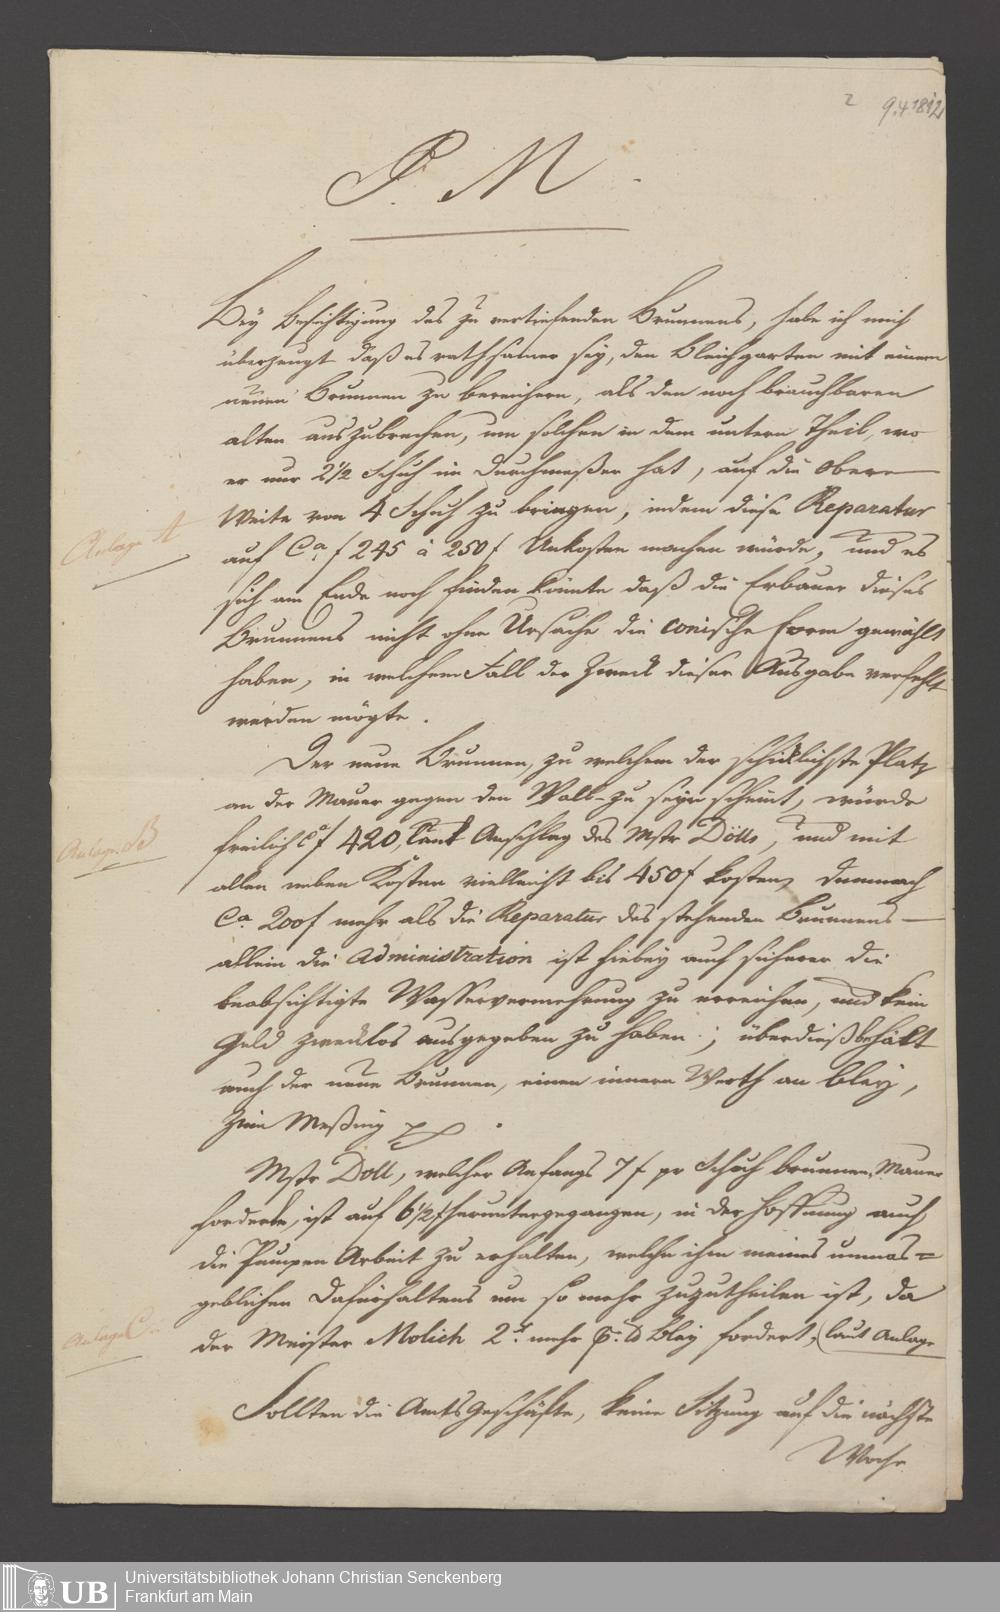 2
9.4.1812
P. M.
Bey Besichtigung des zu vertiefenden Brunnens, habe ich mich
überzeugt daß es rathsamer sey, den Bleichgarten mit einem
neuen Brunnen zu bereichern, als den noch brauchbaren
alten auszubrechen, um solchen in dem untern Theil, wo
er nur 2 1/2 Schuh im Durchmeßer hat, auf die obere
Weite von 4 Schuh zu bringen, indem diese Reparatur
Anlage A
auf Ca f 245 à 250 f Unkosten machen würde, und es
sich am Ende noch finden könnte daß die Erbauer dieses
Brunnens nicht ohne Ursache die conische Form gewählt
haben, in welchem Fall der Zweck dieser Ausgabe verfehlt
werden mögte.
Der neue Brunnen, zu welchem der schicklichste Platz
an der Mauer gegen den Wall zu seyn scheint, würde
Anlage B
freilich Ca f 420, laut Anschlag des Mstr Döll, und mit
allen neben Kosten vielleicht bis 450 f kosten, demnach
Ca. 200 f mehr als die Reparatur des stehenden Brunnens —
allein die Administration ist hiebey auch sicherer die
beabsichtigte Wasservermehrung zu erreichen, und kein
Geld zwecklos ausgegeben zu haben; überdieß behält
auch der neue Brunnen, einen innern Werth an Bley,
Zinn Meßing
Mstr Doll, welcher Anfangs 7 f pr Schuh Brunnen Mauer
forderte, ist auf 6 1/2 f heruntergegangen, in der Hoffnung auch
die Pumpen Arbeit zu erhalten, welche ihm meines unmas=
geblichen Dafürhaltens um so mehr zuzutheilen ist, da
Anlage C
der Meister Molich 2 mehr Bley fordert, (laut Anlage
Sollten die Amts Geschäfte, keine Sitzung auf die nächste
Woche
UB
Universitätsbibliothek Johann Christian Senckenberg
Frankfurt am Main